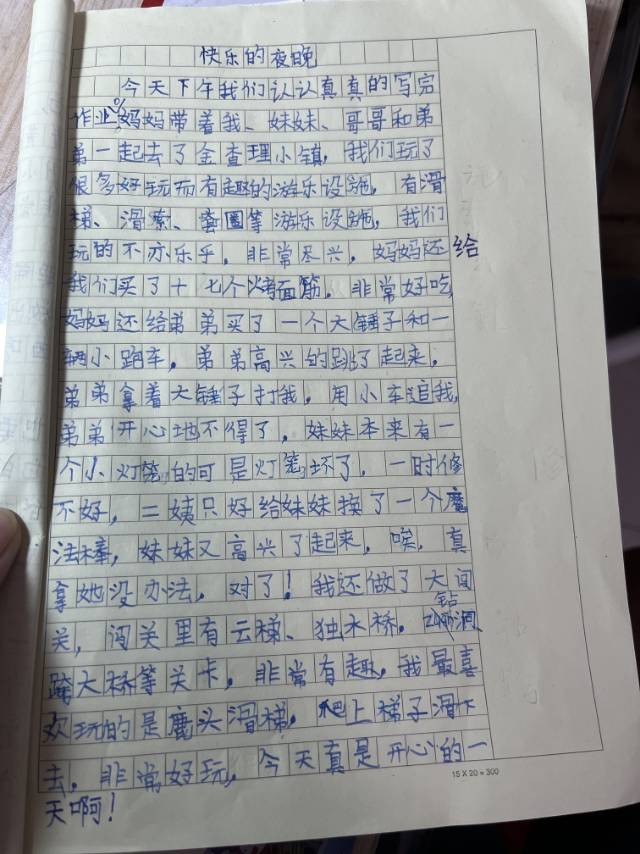 快乐的夜晚
今天下午我们认认真真的写完
作业。妈妈带着我、妹妹、哥哥和弟
弟一起去了金查理小镇，我们玩了
很多好玩而有趣的游乐设施，有滑
梯、滑索、圈等游乐设施，我们
玩的不亦乐乎，非常尽兴，妈妈还给
我们买了十七个烤面筋，非常好吃，
妈妈还给弟弟买了一个大锤子和一
辆小跑车，弟弟高兴的跳了起来，
弟弟拿着大锤子打我，用小车追我，
弟弟开心地不得了，妹妹本来有一
个小灯笼，的可是灯笼坏了，一时修
不好，二姨只好给妹妹换了一个魔
法棒，妹妹又高兴了起来，唉，真
拿她没办法，对了！我还做了大闯
关，闯关里有云梯、独木桥，钻洞
跨大桥等关卡，非常有趣，我最喜
欢玩的是鹿头滑梯，爬上梯子滑下
去，非常好玩，今天真是开心的一
天啊！
15 X 20 = 300